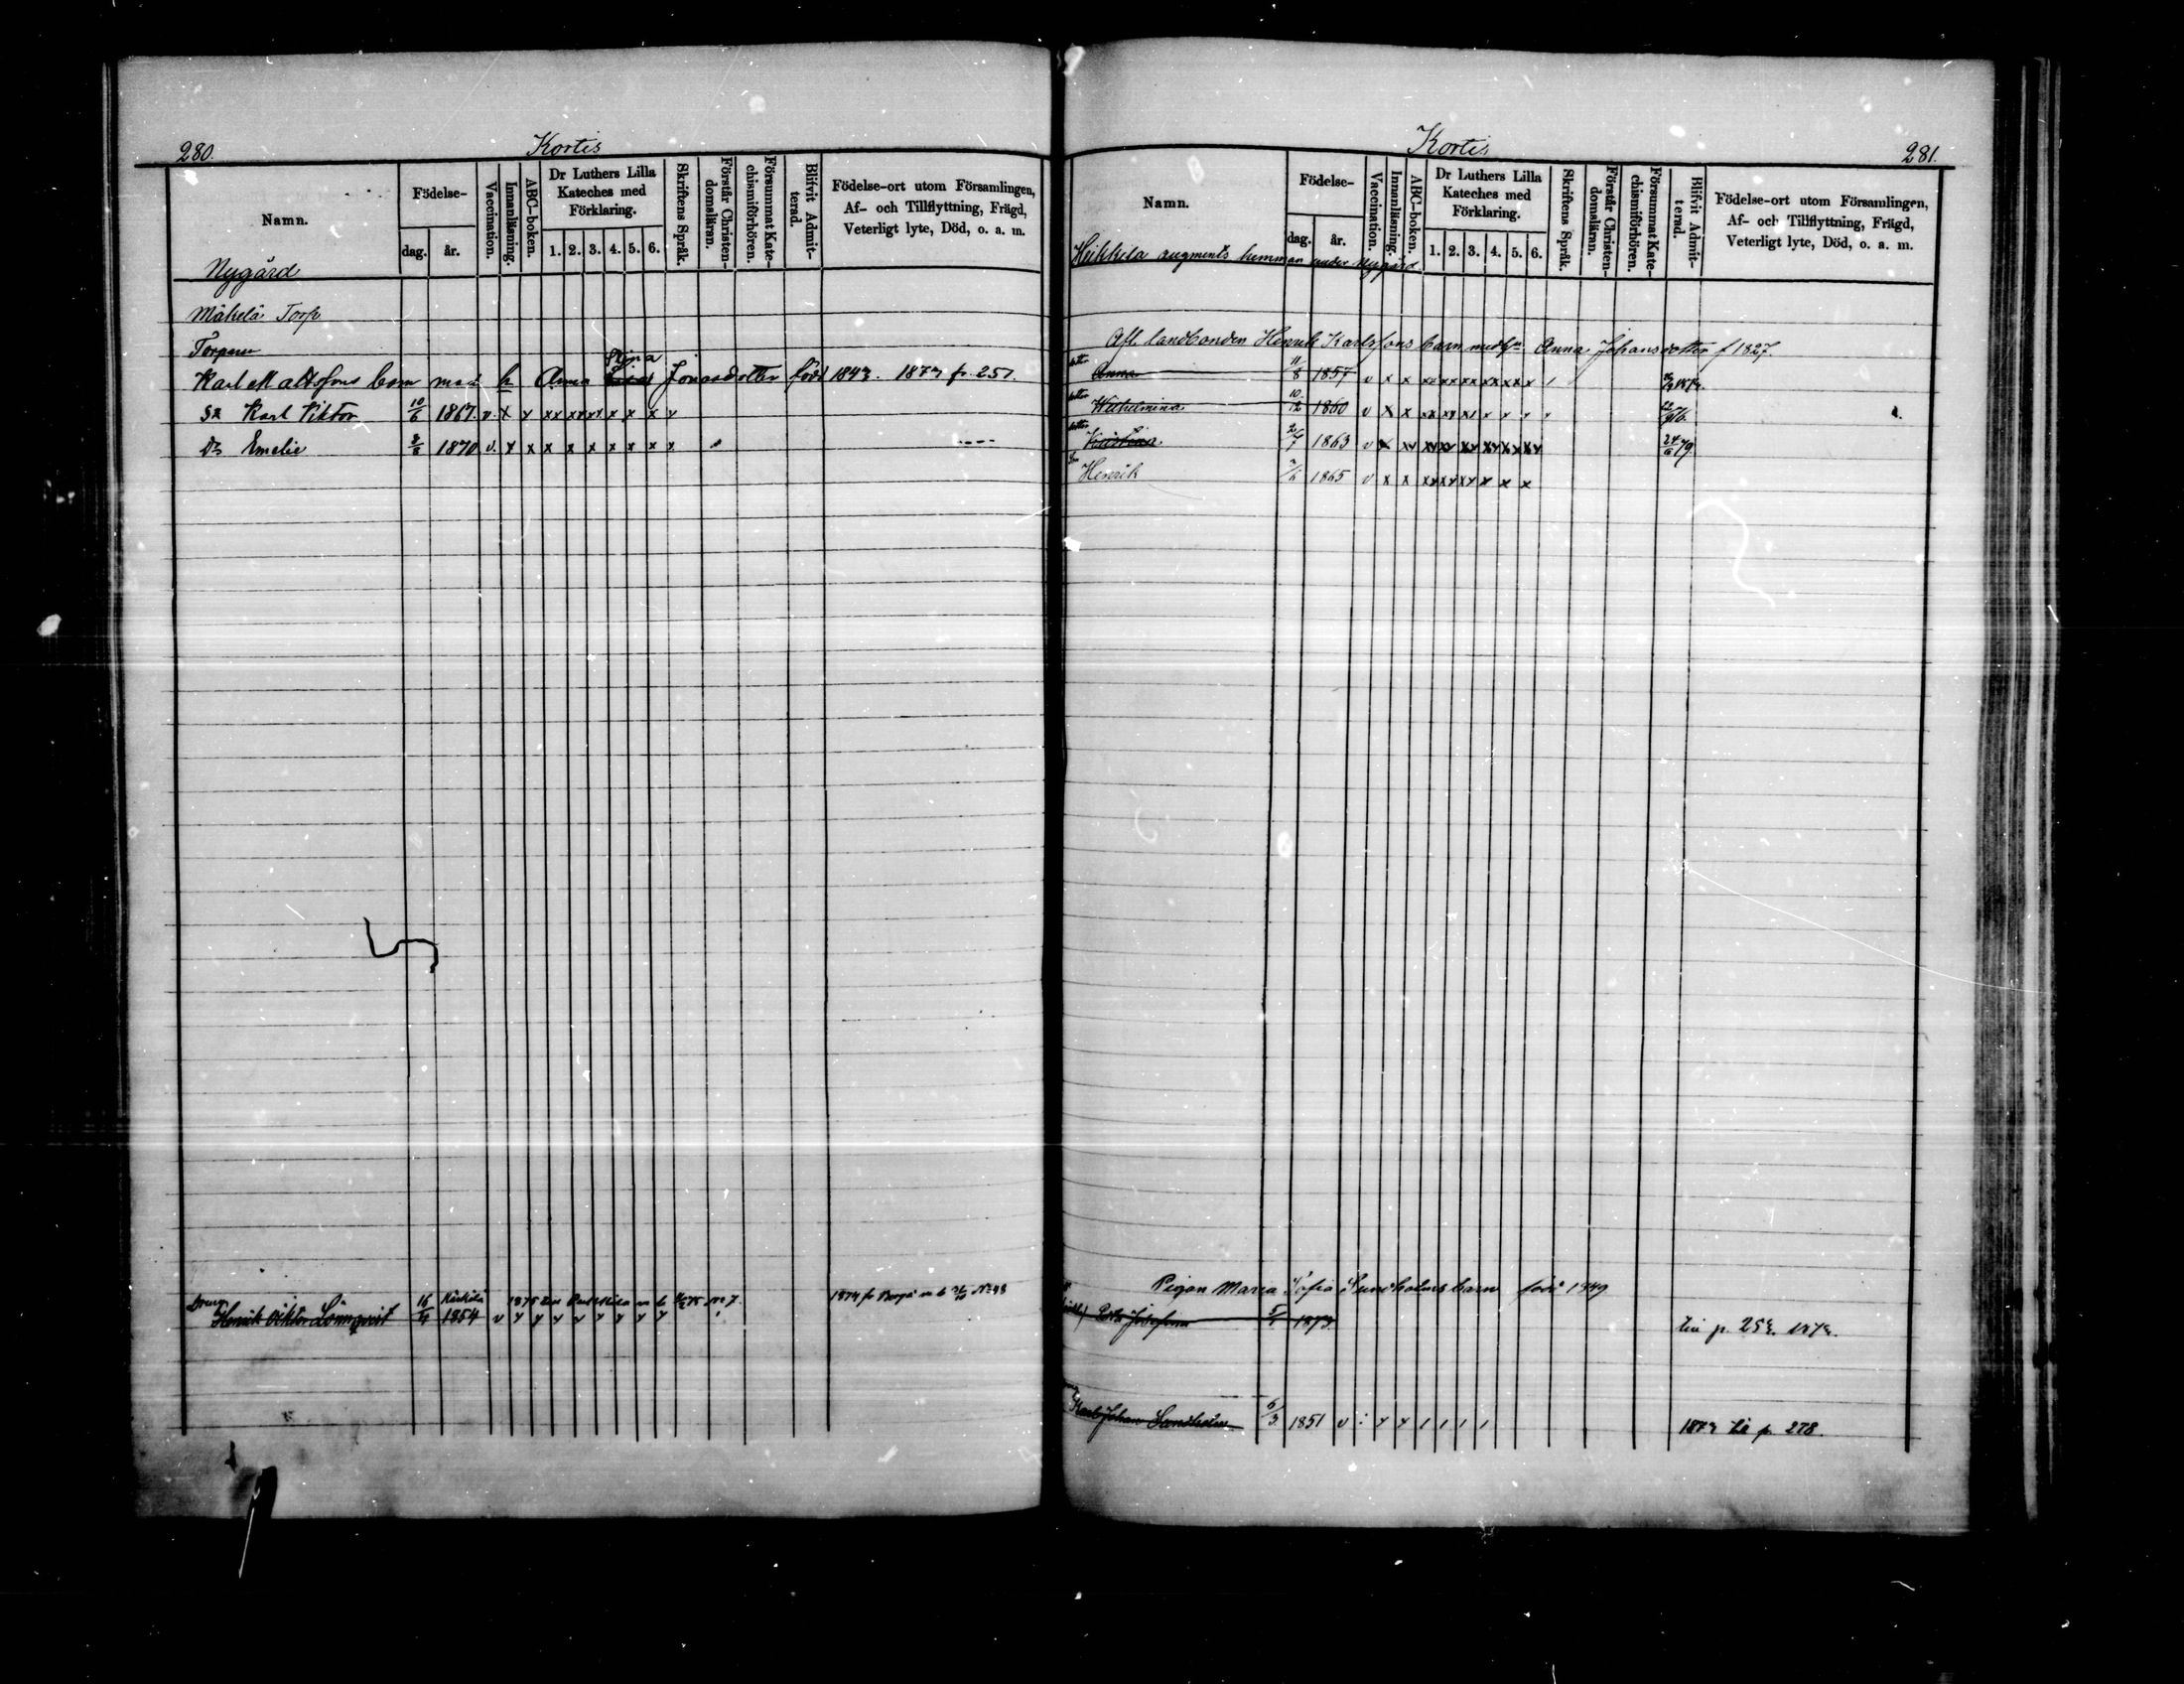 280.
Kortis
Namn.
Födelse-
dag.
år.
Vaccination.
Innanläsning.
ABC-boken.
Dr Luthers Lilla
Kateches med
Förklaring.
1. 2. 3. 4. 5. 6.
Skriftens Språk.
Förstår Christen-
domsläran.
Försummat Kate-
chismiförhören.
Blifvit Admit-
terad.
Födelse-ort utom Församlingen,
Af- och Tillflyttning, Frägd,
Veterligt lyte, Död, o. a. m.
Nygård
Mäkelä Torp
Torparn
Stina
Karl Mattssons barn med h Anna Jonasdotter född 1843. 1873 fr. 251.
Sn Karl Viktor 10/6 1867. v. x y xx xx xx x x x y
Dr Emelie 8/8 1870 v. y x x x x x x x x
1875 m b No 7
1874 fr Borgå m b No 98
Henrik Viktor Lönnqvist 16/4 1854 v y y y y v y y y y
Kortis
281.
Namn.
Födelse-
dag.
år.
Vaccination.
Innanläsning.
ABC-boken.
Dr Luthers Lilla
Kateches med
Förklaring.
1. 2. 3. 4. 5. 6.
Skriftens Språk.
Förstår Christen-
domsläran.
Försummat Kate-
chismiförhören.
Blifvit Admit-
terad.
Födelse-ort utom Församlingen,
Af- och Tillflyttning, Frägd,
Veterligt lyte, Död, o. a. m.
Heikkila augments hemman under Nygård
Afl. landbonden Henrik Karlssons barn med Anna Johansdotter f 1827.
dotter Anna 11/8 1857 v x x xx xx xx xx xx x
dotter Wilhelmina 10/12 1860 v x x xx xy x x y y
dotter Kristina 1863 v x xy xy xy xy xy xy xy 24/6 79.
Henrik 7/6 1865 v x x xy xy xy x x x
Pigan Maria Sofia Sundholms barn född 1849
Josefina 1873. till p. 253. 1873.
Karl Johan Sandholm 6/3 1851 v : y y 1 1 1 1 1873 till p. 278.